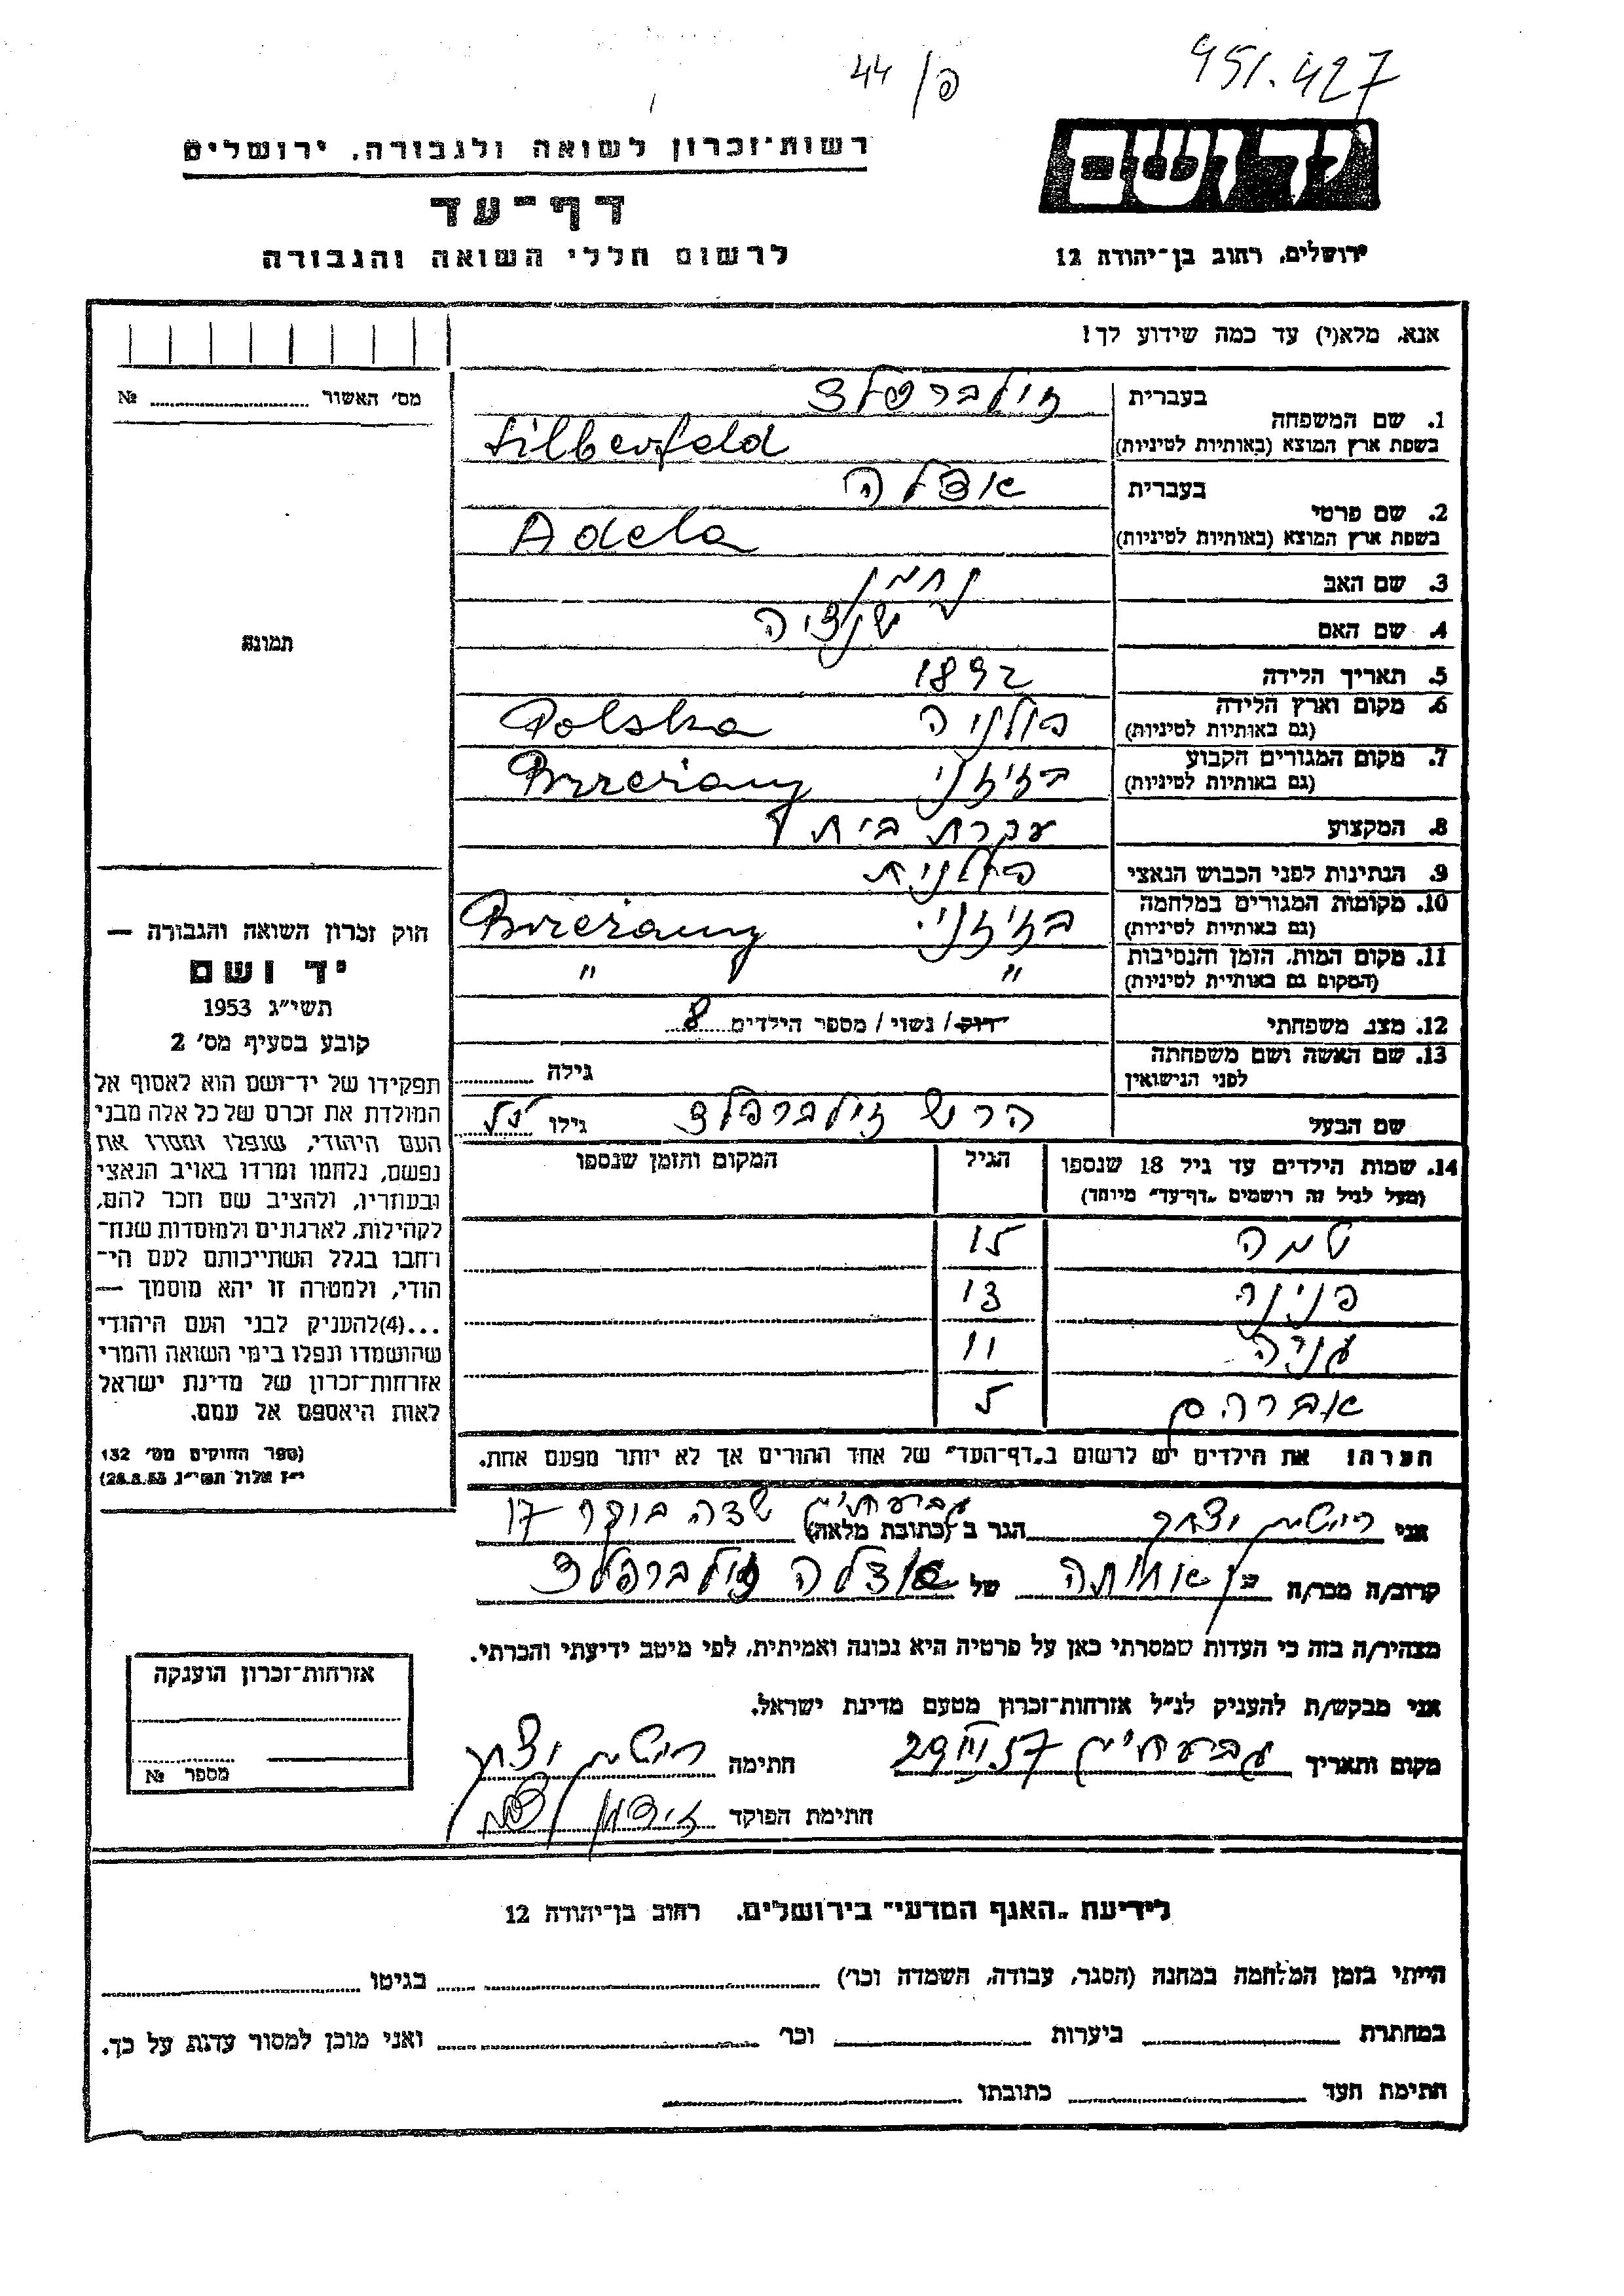 451.427
44/פ
רשות־זכרון לשואה ולגבורה, ירושלים
יד ושם
דף־עד
לרשום חללי השואה והגבורה
ירושלים, רחוב בן־יהודה 12
אנא, מלא(י) עד כמה שידוע לך!
מס׳ האשור № 
1. שם המשפחה
בעברית זילברפלד
בשפת ארץ המוצא (באותיות לטיניות) Silberfeld
2. שם פרטי
בעברית אדלה
בשפת ארץ המוצא (באותיות לטיניות) Adela
3. שם האב נחמן
4. שם האם
5. תאריך הלידה 1892
6. מקום וארץ הלידה פולניה Polska
(גם באותיות לטיניות)
7. מקום המגורים הקבוע בז׳ז׳ני Brzeżany
(גם באותיות לטיניות)
8. המקצוע עקרת בית
9. הנתינות לפני הכבוש הנאצי פולנית
10. מקומות המגורים במלחמה בז׳ז׳ני Brzeżany
(גם באותיות לטיניות)
11. מקום המות, הזמן והנסיבות " "
(המקום גם באותיות לטיניות)
12. מצב משפחתי רווק/ נשוי/ מספר הילדים 8
13. שם האשה ושם משפחתה
לפני הנישואין גילה
שם הבעל הרש זילברפלד גילו
14. שמות הילדים עד גיל 18 שנספו הגיל המקום והזמן שנספו
(מעל לגיל זה רושמים „דף־עד" מיוחד)
15
פנינה 13
11
אברהם 5
הערה! את הילדים יש לרשום ב„דף־העד" של אחד ההורים אך לא יותר מפעם אחת.
תמונה
חוק זכרון השואה והגבורה —
יד ושם
תשי״ג 1953
קובע בסעיף מס׳ 2
תפקידו של יד־ושם הוא לאסוף אל
המולדת את זכרם של כל אלה מבני
העם היהודי, שנפלו ומסרו את
נפשם, נלחמו ומרדו באויב הנאצי
ובעוזריו, ולהציב שם וזכר להם,
לקהילות, לארגונים ולמוסדות שנח־
רבו בגלל השתייכותם לעם הי־
הודי, ולמטרה זו יהא מוסמך —
...(4)להעניק לבני העם היהודי
שהושמדו ונפלו בימי השואה והמרי
אזרחות־זכרון של מדינת ישראל
לאות היאספם אל עמם.
(ספר החוקים מס׳ 132
י״ז אלול תשי״ג 28.8.53)
אני הגר ב (כתובת מלאה) גבעת חיים שדה בוקר 17
קרוב/ה מכר/ה בן אחותה של אדלה זילברפלד
מצהיר/ה בזה כי העדות שמסרתי כאן על פרטיה היא נכונה ואמיתית, לפי מיטב ידיעתי והכרתי.
אני מבקש/ת להעניק לנ״ל אזרחות־זכרון מטעם מדינת ישראל.
מקום ותאריך 57 חתימה
חתימת הפוקד
אזרחות־זכרון הוענקה
מספר №
לידיעת „האגף המדעי" בירושלים, רחוב בן־יהודה 12
הייתי בזמן המלחמה במחנה (הסגר, עבודה, השמדה וכו׳) בגיטו
במחתרת ביערות וכו׳ ואני מוכן למסור עדות על כך.
חתימת העד כתובתו